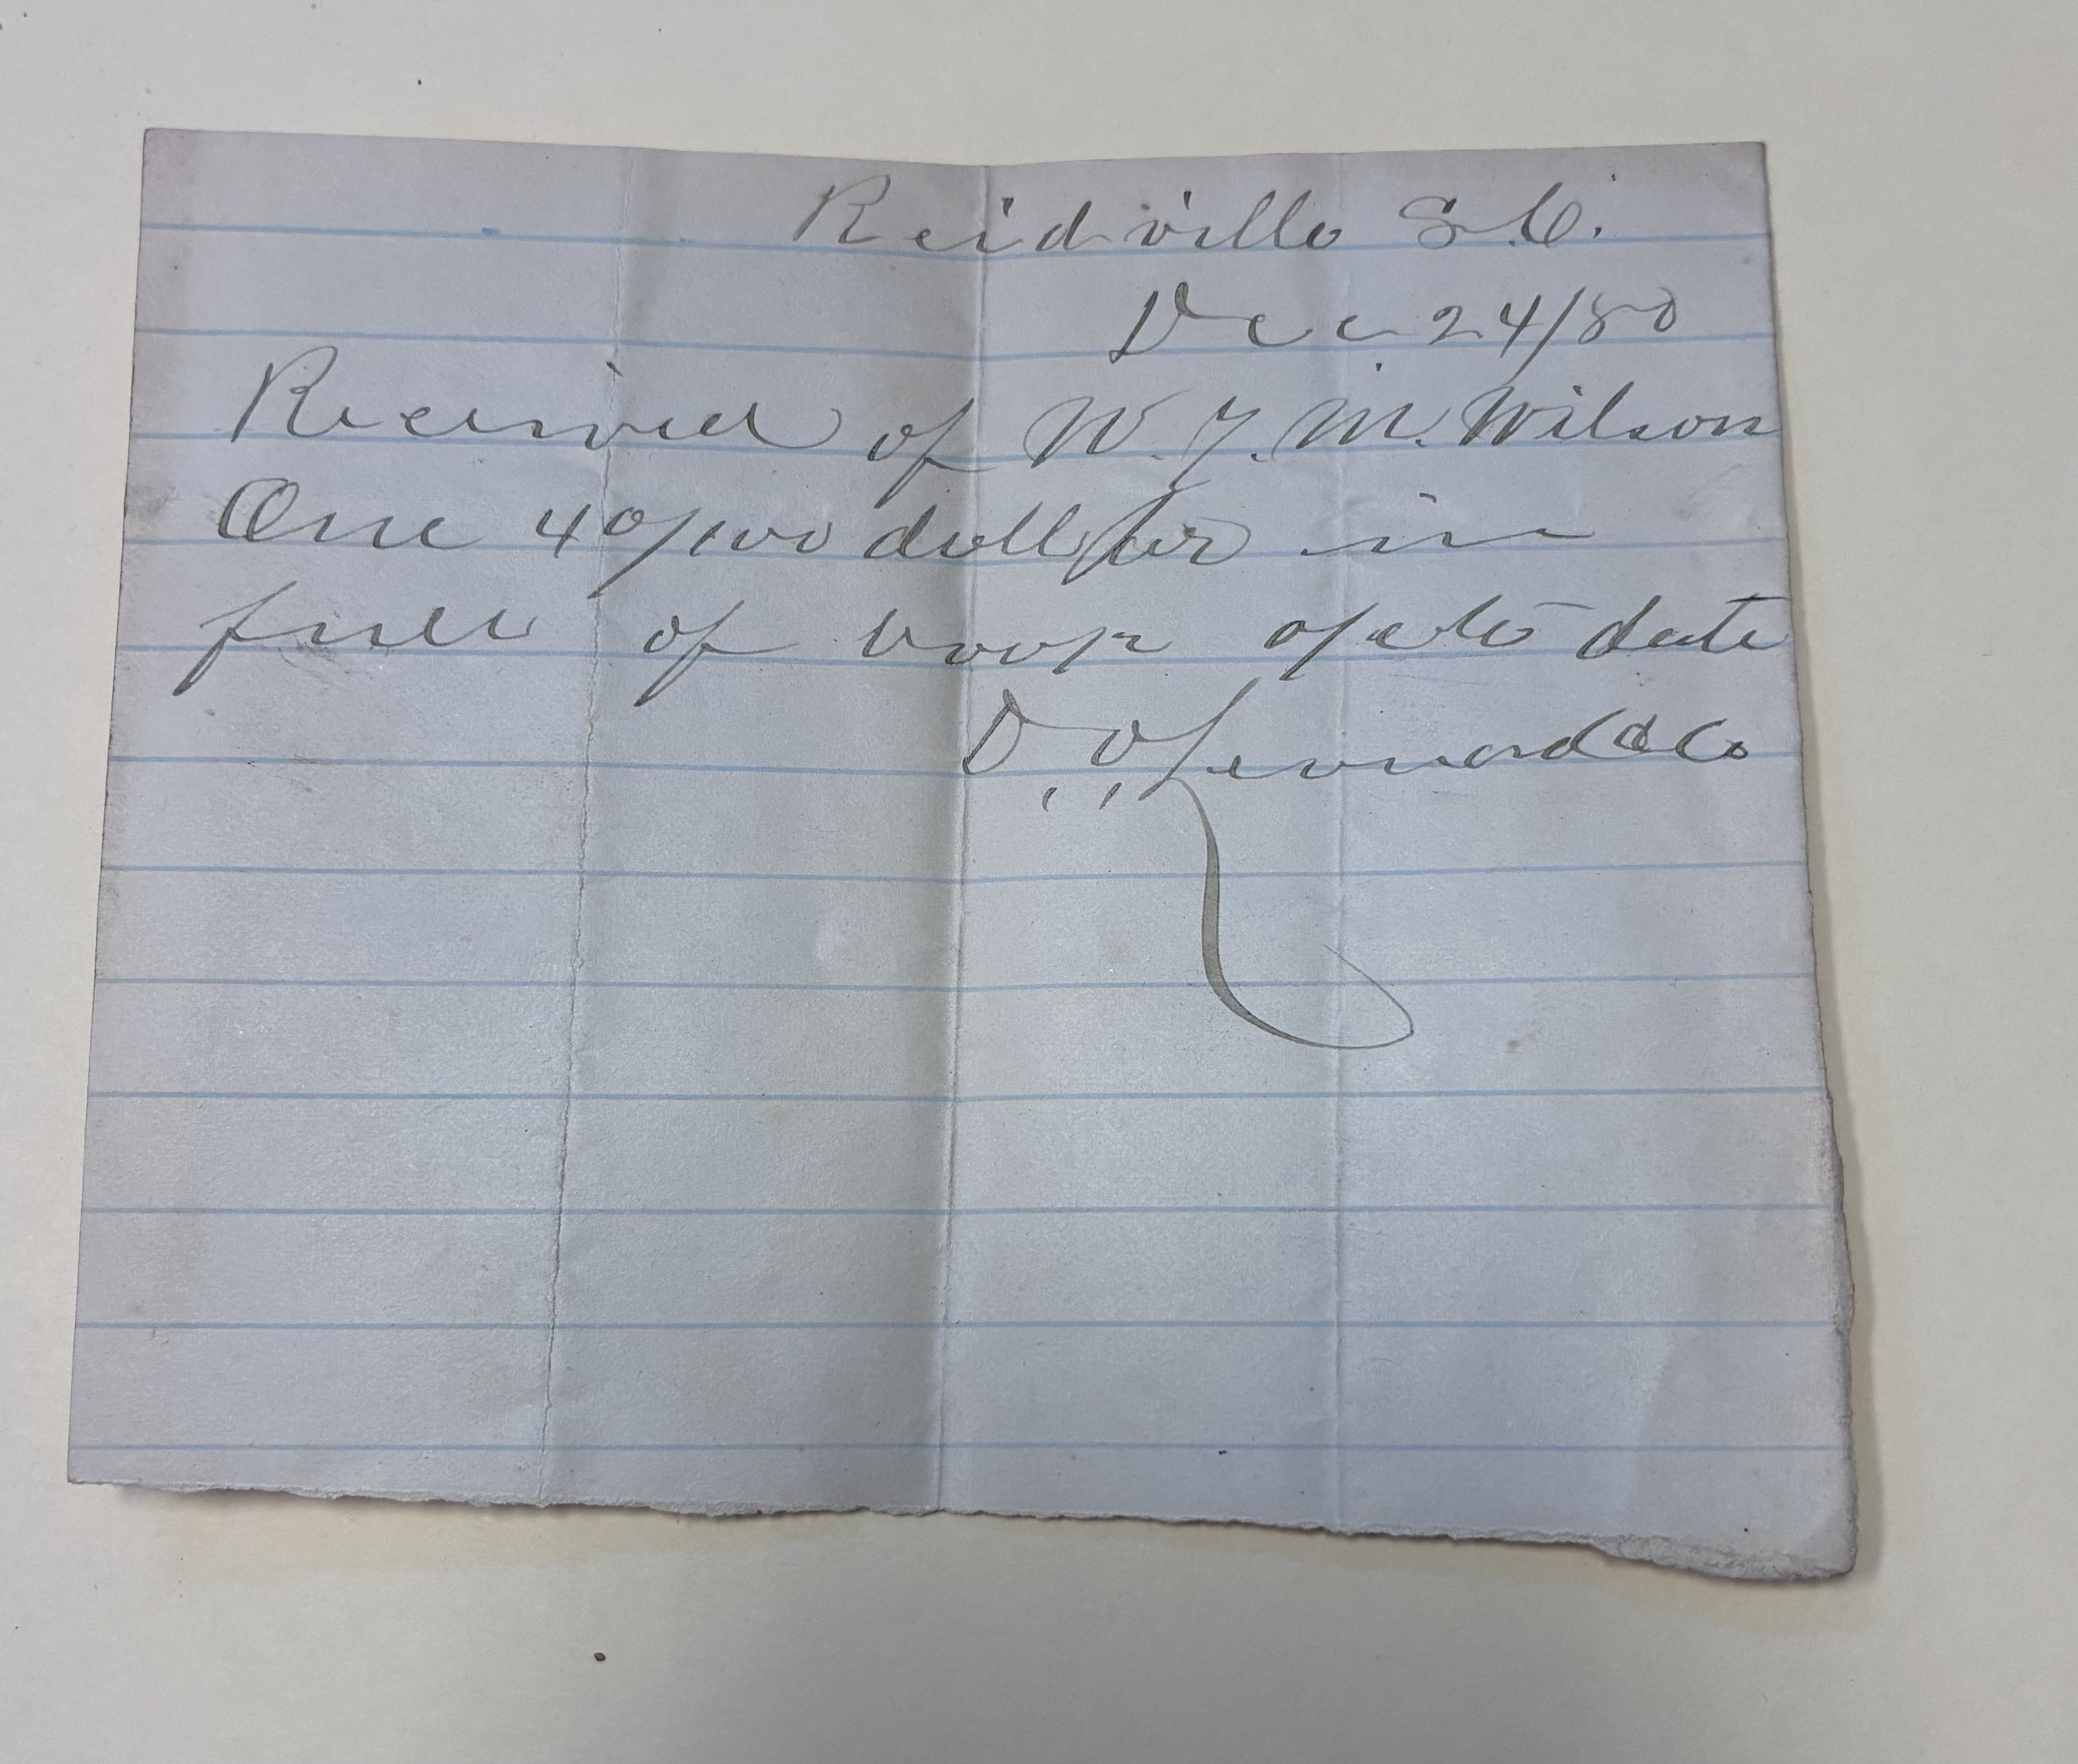 Reidville S.C.
Dec 24/80
Received of W. J. M. Wilson
One 40/100 dollar in
full of book a/c to date
D. O. Leonard & Co